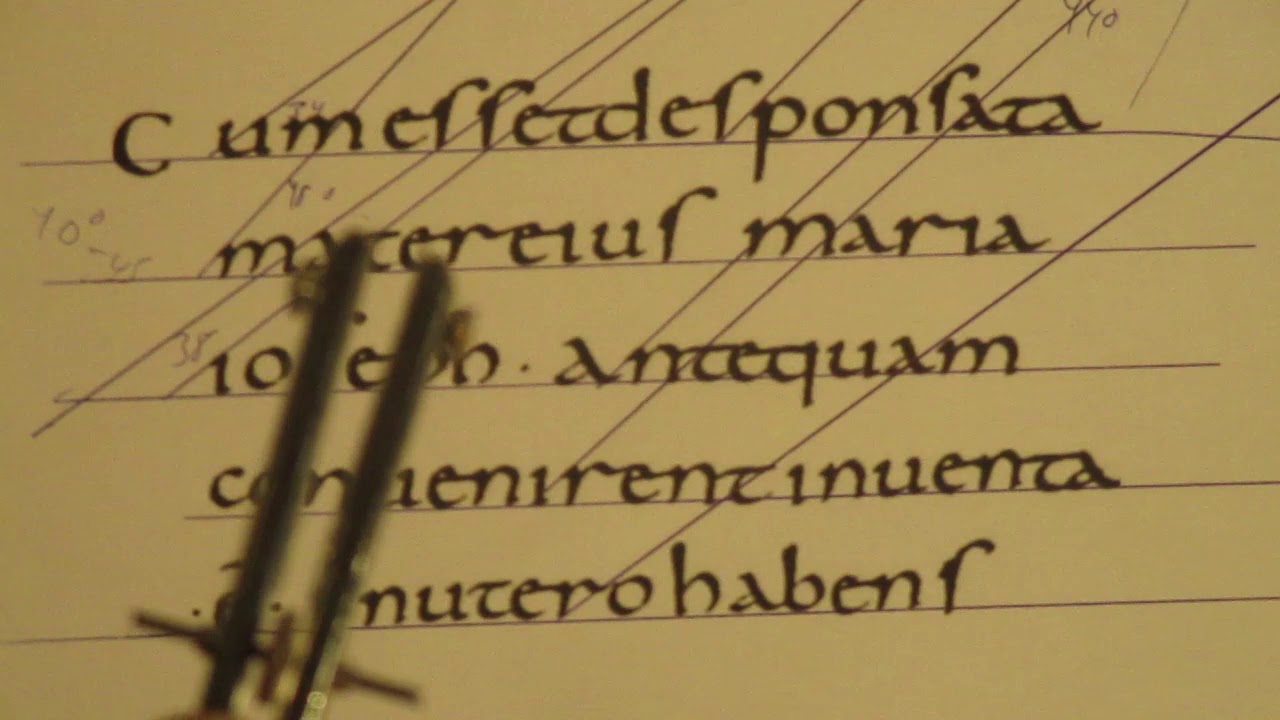 Cum esset desponsata
mater eius maria
ioseph. Antequam
conuenirent inuenta
.ē. in utero habens